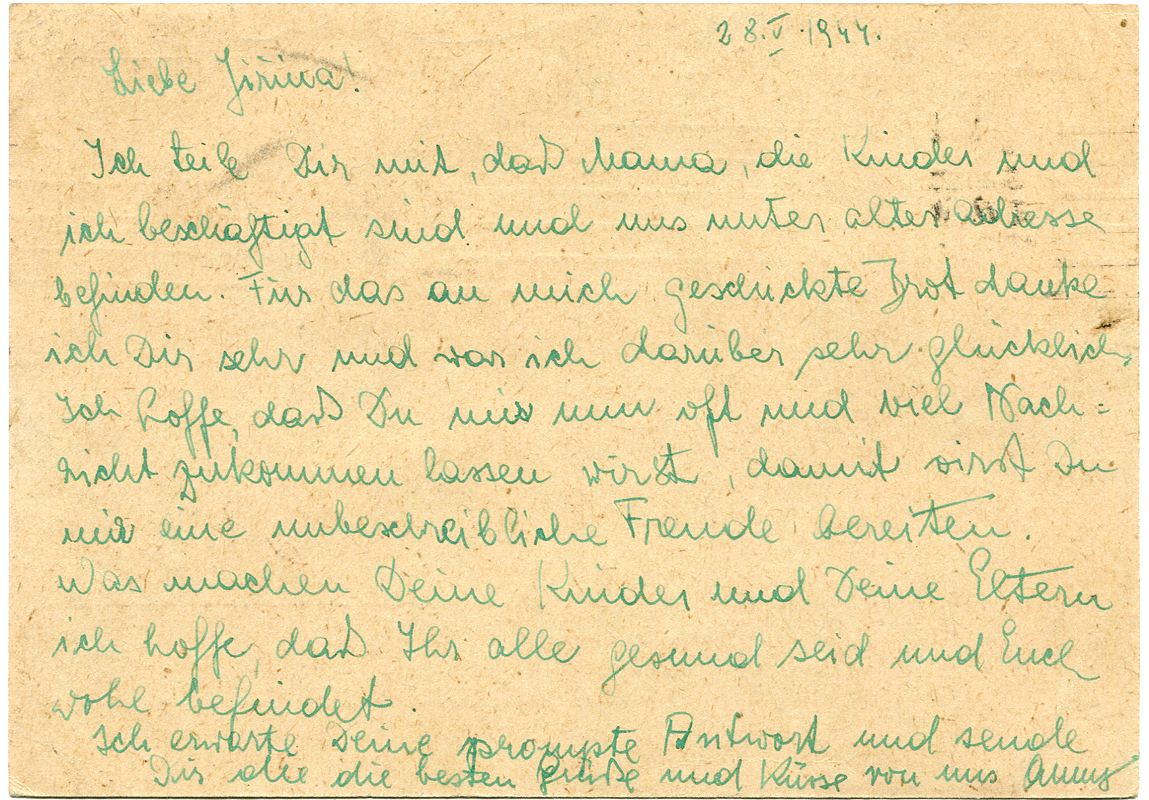 28.V.1944.
Liebe Jiřina!
Ich teile Dir mit, daß Mama, die Kinder und
ich beschäftigt sind und uns unter alter Adresse
befinden. Für das an mich geschickte Brot danke
ich Dir sehr und war ich darüber sehr glücklich,
Ich hoffe, daß Du mir nun oft und viel Nach=
richt zukommen lassen wirst, damit wirst Du
mir eine unbeschreibliche Freude bereiten.
Was machen Deine Kinder und Deine Eltern
ich hoffe, daß Ihr alle gesund seid und Euch
wohl befindet.
Ich erwarte Deine prompte Antwort und sende
Dir die die besten Grüße und Küsse von uns Anny